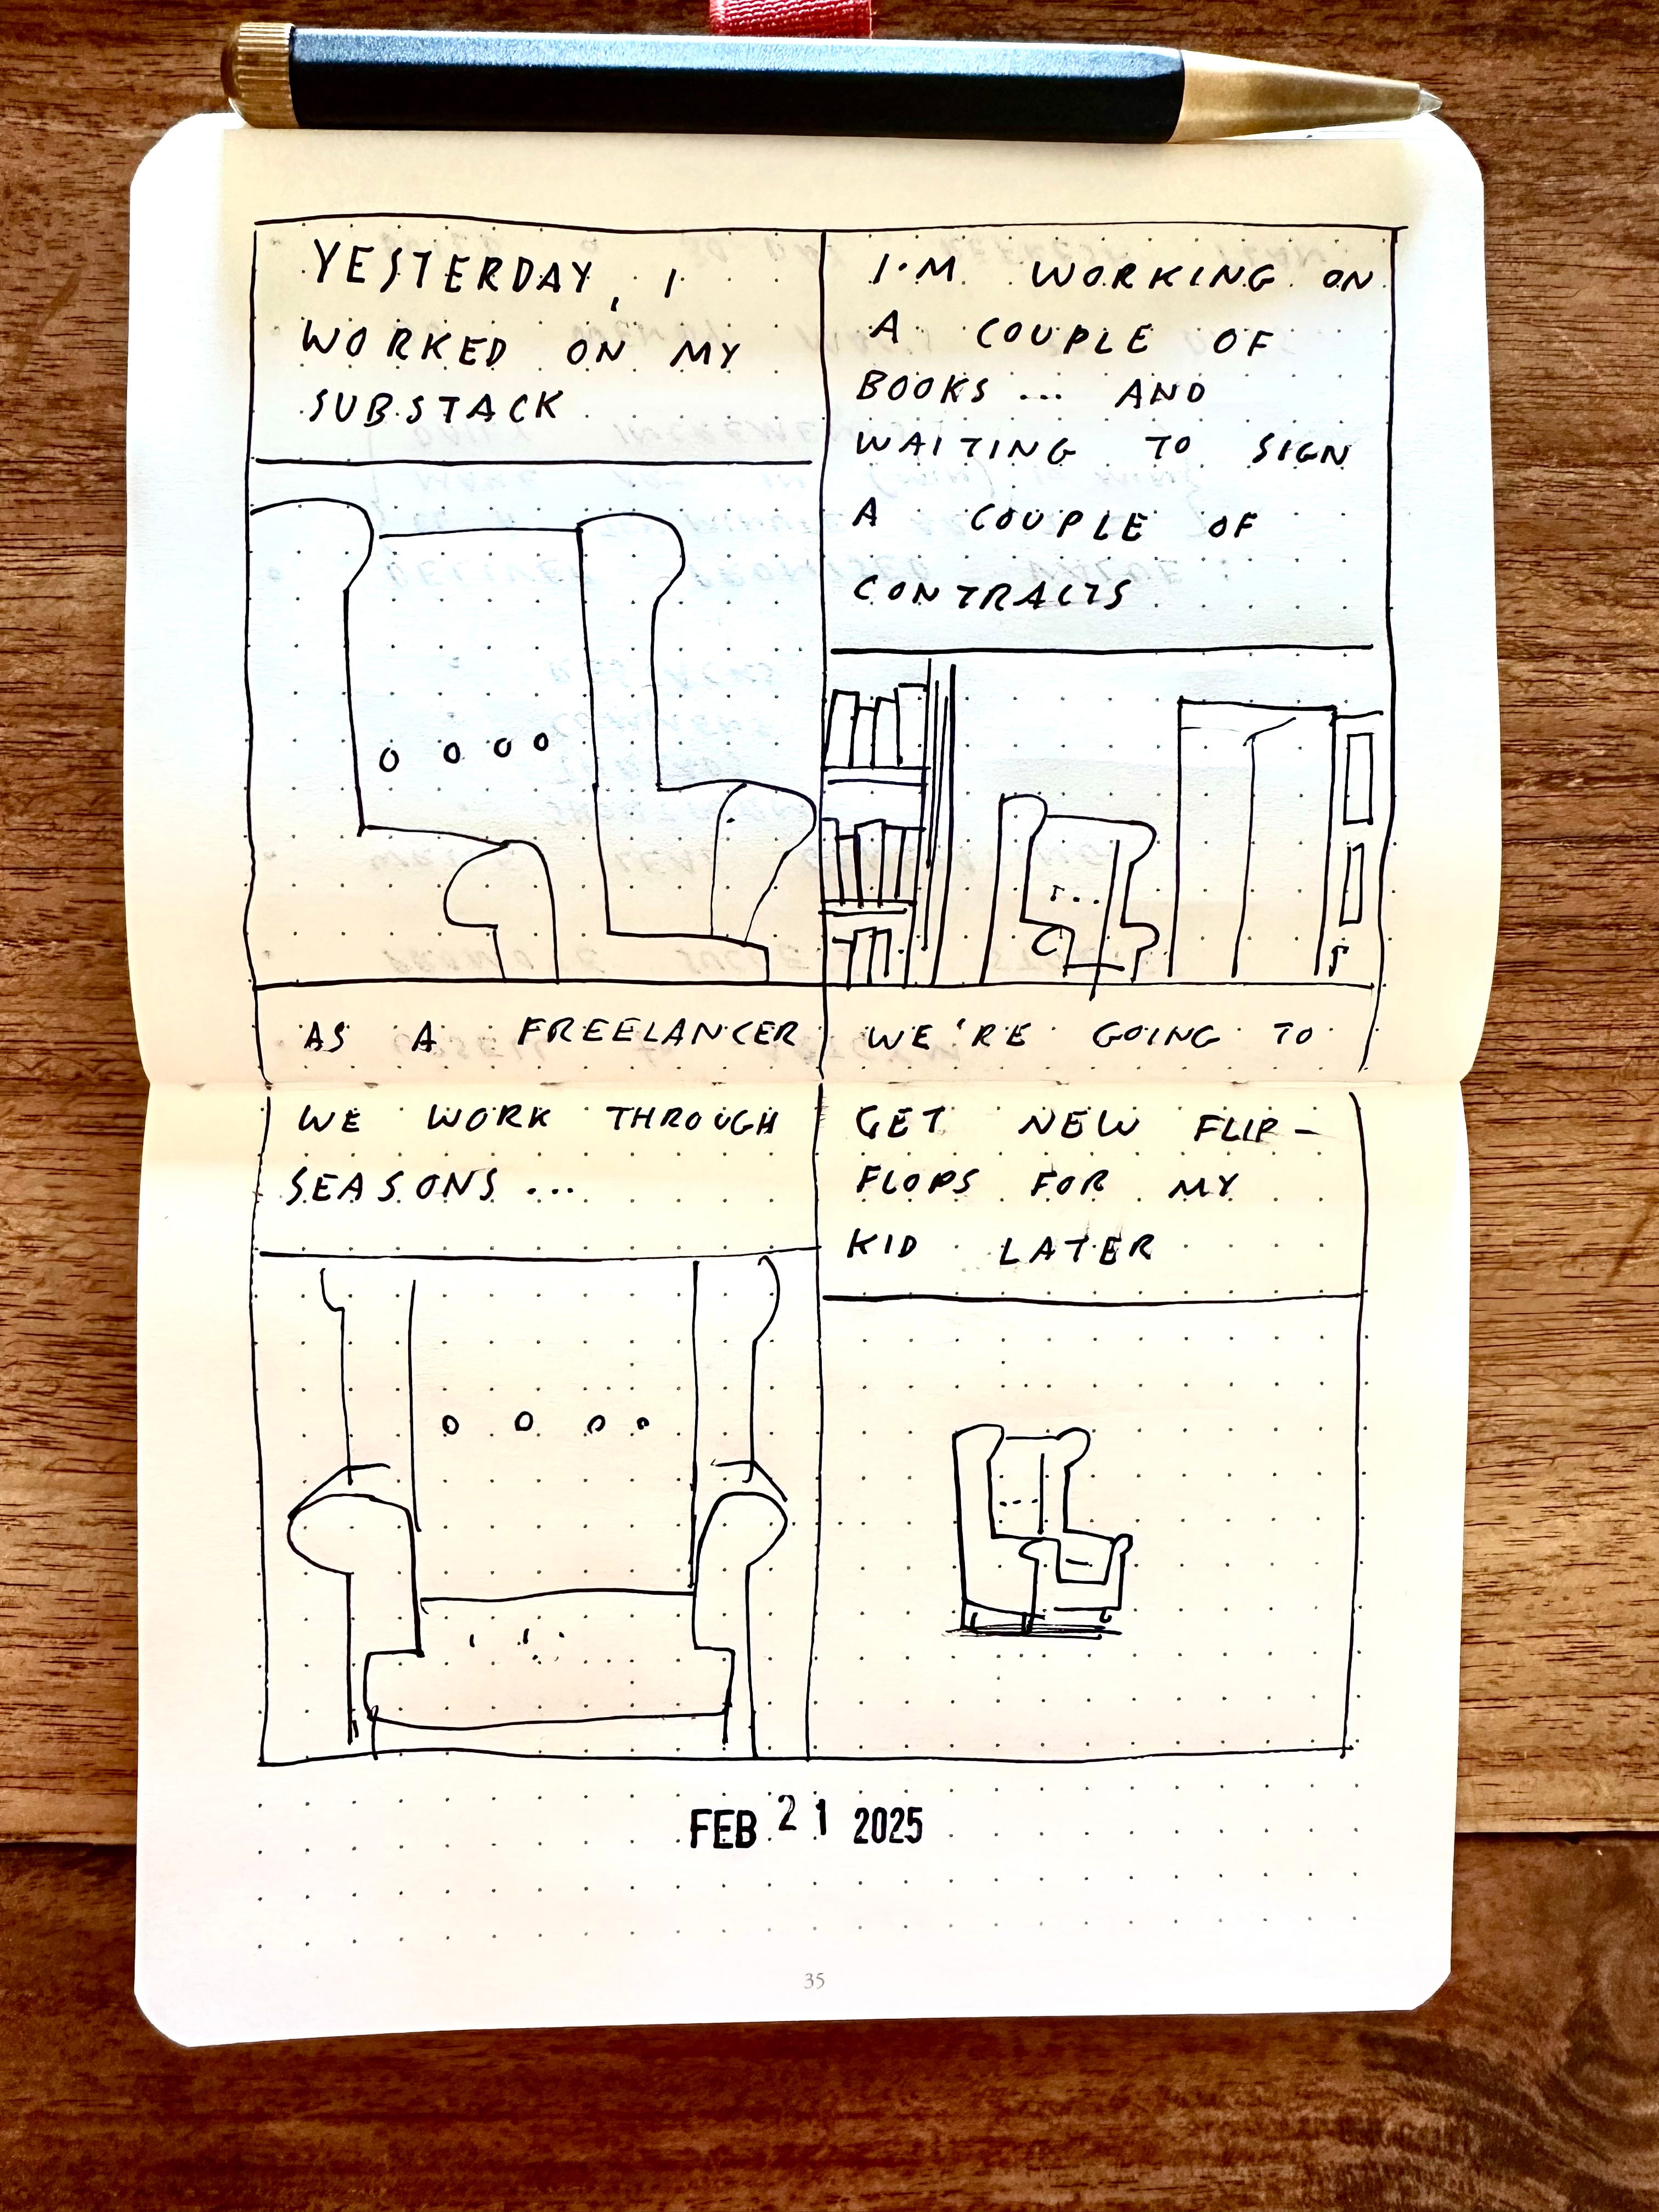 YESTERDAY, I
WORKED ON MY
SUBSTACK
I'M WORKING ON
A COUPLE OF
BOOKS... AND
WAITING TO SIGN
A COUPLE OF
CONTRACTS
AS A FREELANCER
WE WORK THROUGH
SEASONS...
WE'RE GOING TO
GET NEW FLIP-
FLOPS FOR MY
KID LATER
FEB 21 2025
35